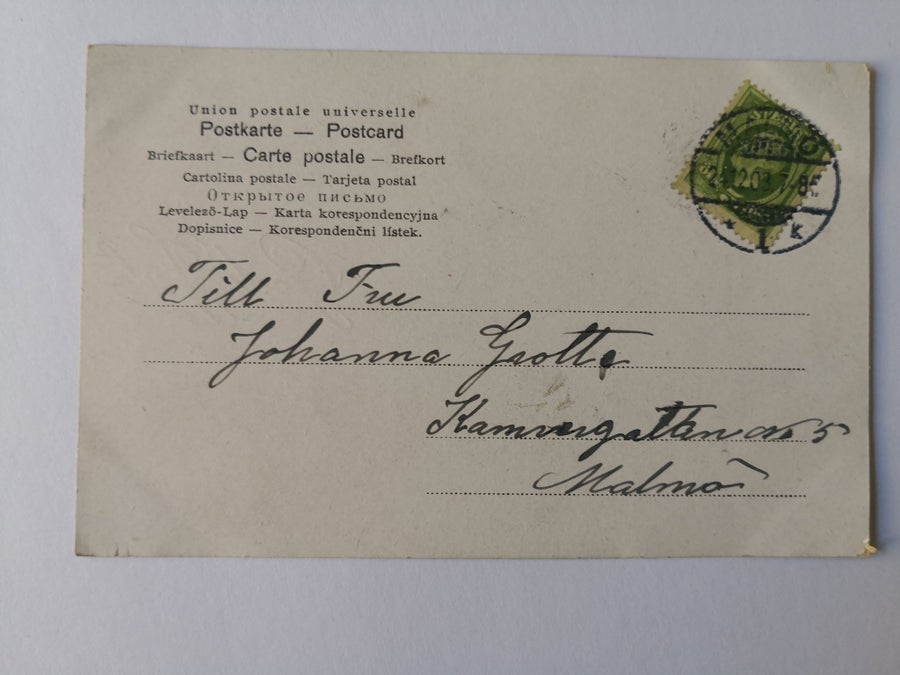 Union postale universelle
Postkarte — Postcard
Briefkaart — Carte postale — Brefkort
Cartolina postale — Tarjeta postal
Открытое письмо
Levelező-Lap — Karta korespondencyjna
Dopisnice — Korespondenčni lístek.
12.03
k
Till Fru
Johanna Grotte
No 5
Malmö